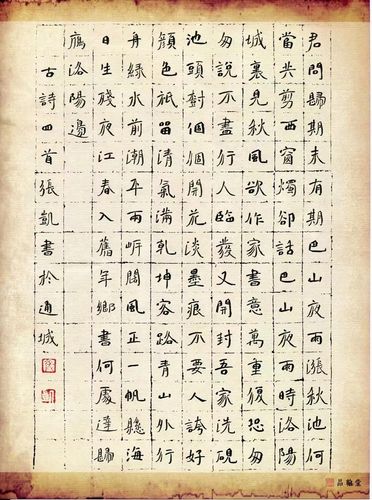 君問歸期未有期巴山夜雨漲秋池何
當共剪西窗燭卻話巴山夜雨時洛陽
城裏見秋風欲作家書意萬重復恐匆
匆說不盡行人臨發又開封吾家洗硯
池頭樹個個開花淡墨痕不要人誇好
顏色祇留清氣滿乾坤客路青山外行
舟綠水前潮平兩岸闊風正一帆懸海
日生殘夜江春入舊年鄉書何處達歸
雁洛陽邊
古詩四首張凱書於通城